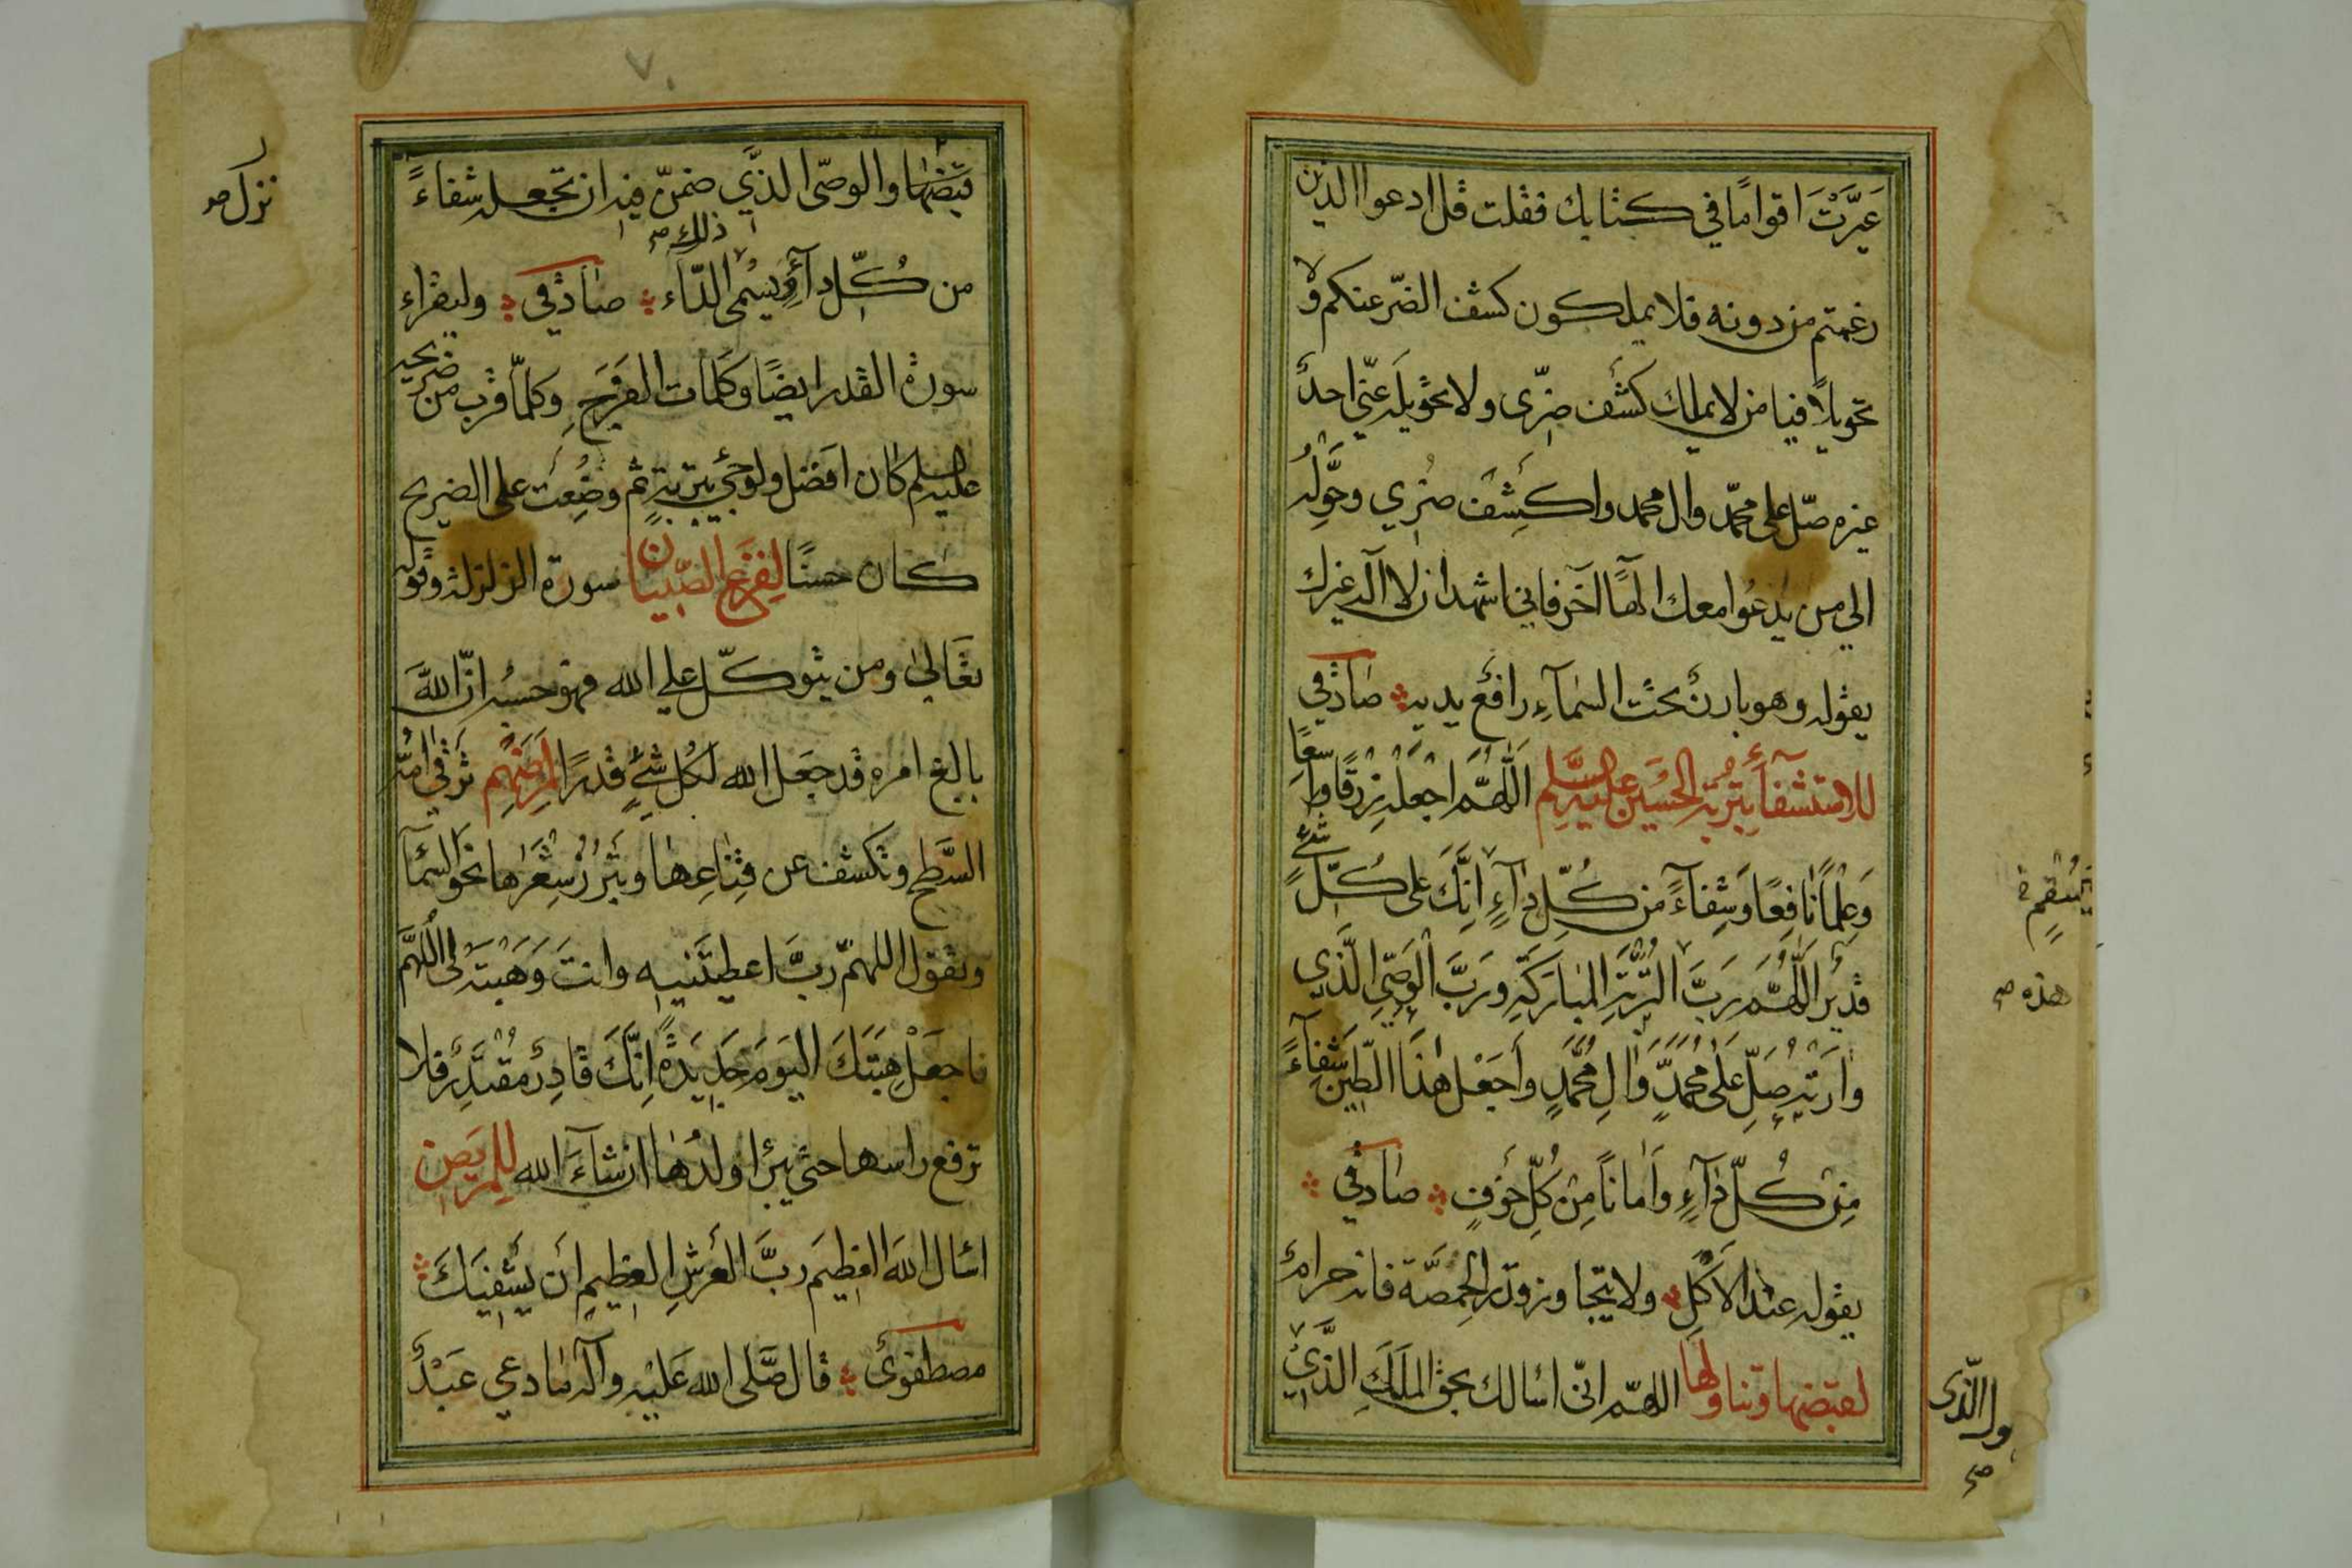 عَيَّرْتَ اقوامًا في كتابك فقلت قل ادعوا الذين
زعمتم من دونه فلا يملكون كشف الضّر عنكم ولا
تحويلًا فيا من لا يملك كشف ضرّى ولا تحويله عنّي احدٌ
غيره صّل على محمّد وال محمد واكشف ضرّي وحَوِّله
الي من يدعُوا معك الهًا آخر فاني اشهد ان لا آله غيرك
يقوله وهو بارزٌ تحت السّمآءِ رافع يديه صادقي
للاستشفآء بتربة الحُسين عليه السَّلم اَللّهُمَّ اجْعَلْهُ رِزْقًا واسِعًا
وَعِلْمًا نافِعًا وَشِفآءً من كُلِّ دآءٍ اِنَّكَ على كُلِّ شئٍ
قديرٌ اَللّهُمَّ رَبَّ التُّرْبَةِ المبارَكَةِ وَرَبَّ الْوَصِيّ الَّذي
وارَتْهُ صَلِّ عَلى مُحَمَّدٍ وَالِ مُحَمَّدٍ وَاجْعَلْ هٰذَا الطّين شِفآءً
مِنْ كُلِّ دآءٍ وَاَمانًا مِنْ كُلِّ خَوْفٍ صادقي
يقوله عند الاَكلِ ولا يتجاوز قدر الحِمّصَة فانه حرامٌ
لقبضها وتناولها اللهمّ انّى اسالك بحق الملَكِ الّذي
يُسْقمٍ
هذه ص
ول الّذى
ص
قبضها والوصّى الذّي ضمنّ فيه ان تجعله شفاءً
ذلك ص
من كُلّ دآءٍ ويُسْمى الدّآء صادقي وليقراء
سورة القدر ايضًا وكلمات الفَرَجِ وكلمّا قرب من ضريحه
عليه السلم كان افضل ولو جئ بتربةٍ ثم وضِعَت على الضريح
كان حسنًا لفزع الصّبيان سورة الزلزلة وقوله
تعَالىٰ ومن يتوكّل علي الله فهو حسبُه انّ اللّهَ
بالغ امره قد جعَل الله لكُل شئٍ قدرًا لمرَضهِم ترقى امّه
السَّطح وتكشف عن قِناعِها ويَبْرُزُ شَعْرَها نحو السّمآ
وتقول اللهمّ ربَّ اعطيتَنيه وانتَ وَهَبْتَه لى اَللّهُمَّ
فاجعَلْ هِبَتَكَ اليَومَ جَديدَةً اِنَّكَ قادِرٌ مُقْتَدِرٌ فلا
ترفع راسها حتى يبرا ولدُها ان شآءَ الله للمريض
اسال اللهَ العظِيمَ رَبَّ العَرشِ العظِيمِ اَن يَشْفِيَكَ
مصطفوىٌ قال صَّلى الله عَليْه وآله مادعى عَبْدٌ
نزل ص